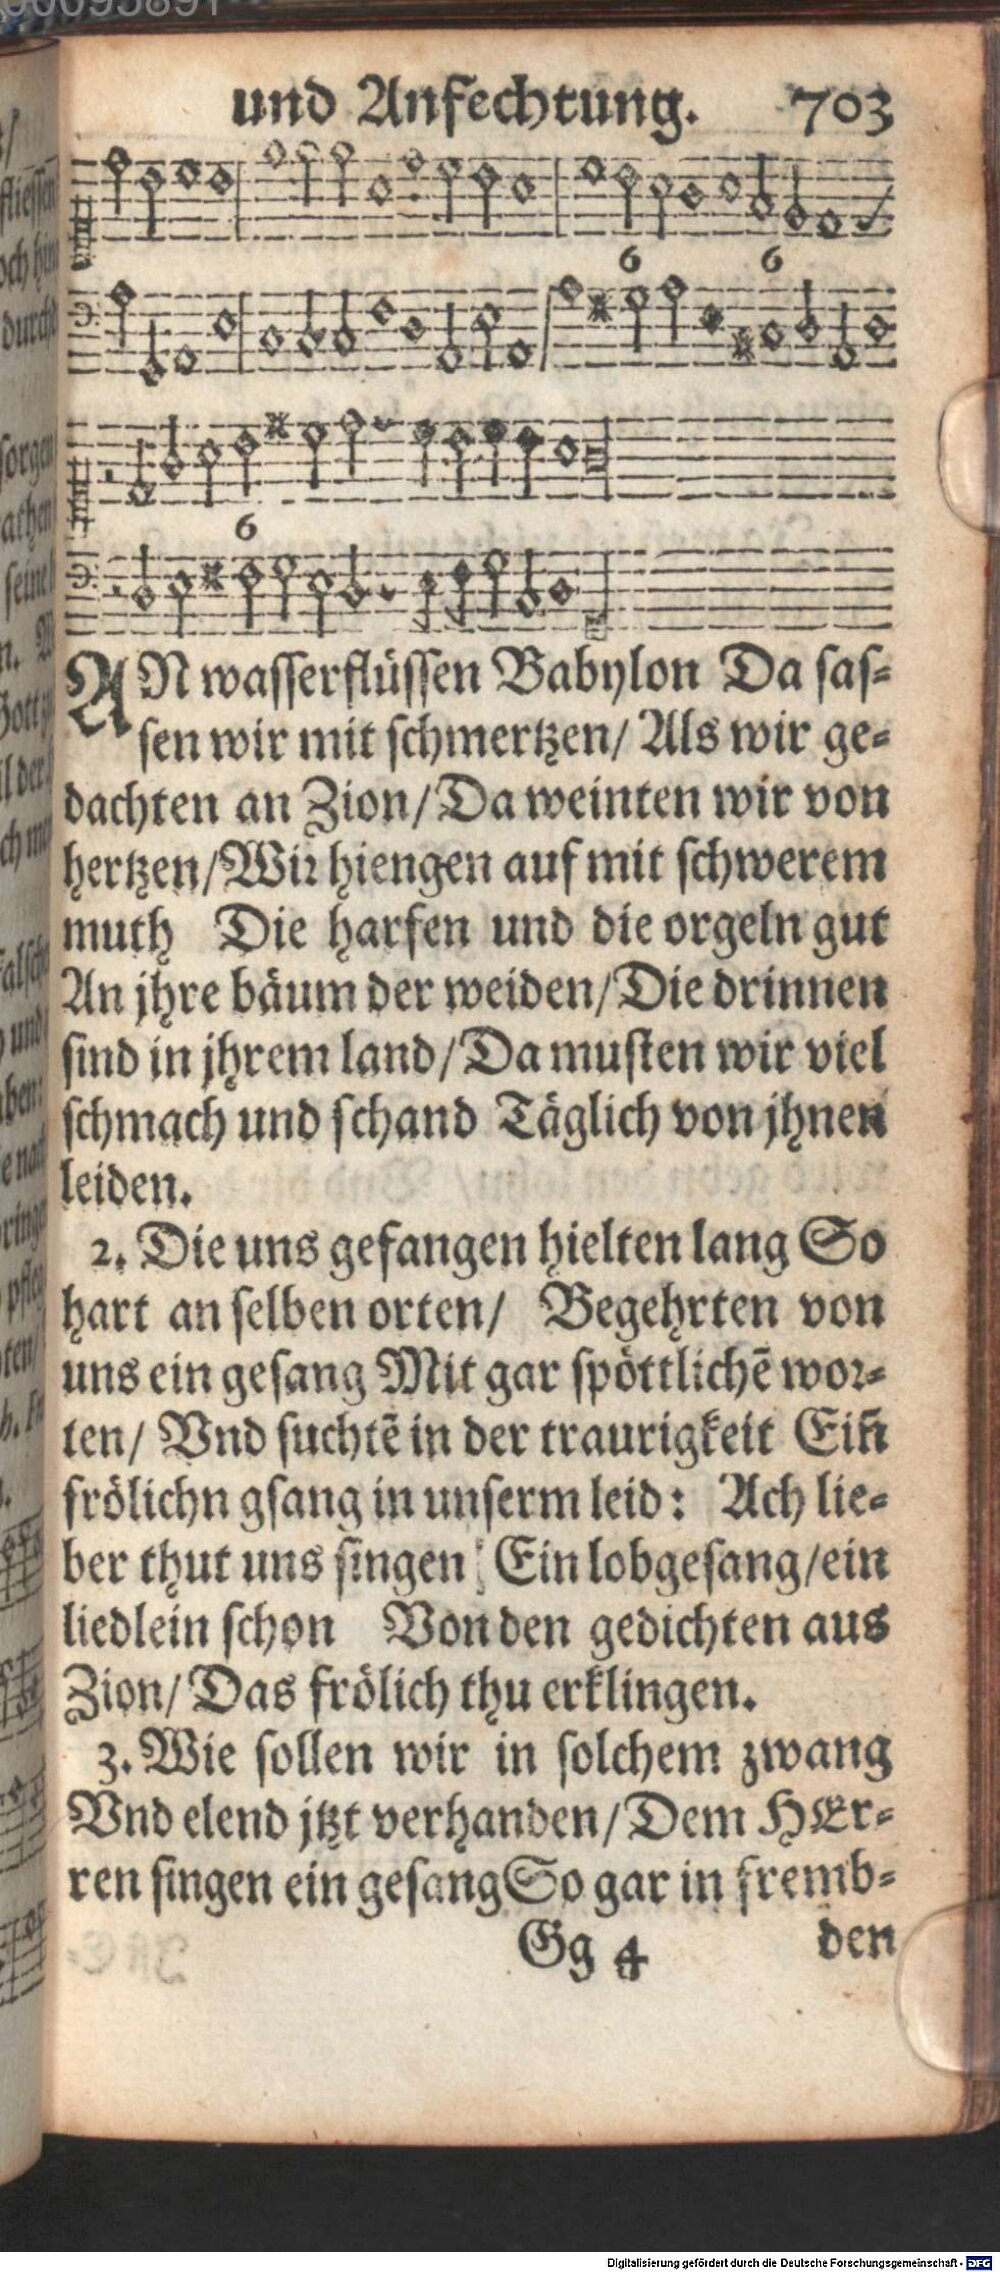 und Anfechtung. 703
6 6
6
AN wasserflüssen Babylon Da sas-
sen wir mit schmertzen/ Als wir ge-
dachten an Zion/ Da weinten wir von
hertzen/ Wir hiengen auf mit schwerem
muth Die harfen und die orgeln gut
An jhre bäum der weiden/ Die drinnen
sind in jhrem land/ Da musten wir viel
schmach und schand Täglich von jhnen
leiden.
2. Die uns gefangen hielten lang So
hart an selben orten/ Begehrten von
uns ein gesang Mit gar spöttlichē wor-
ten/ Vnd suchtē in der traurigkeit Ein̄
frölichn gsang in unserm leid: Ach lie-
ber thut uns singen Ein lobgesang/ ein
liedlein schon Von den gedichten aus
Zion/ Das frölich thu erklingen.
3. Wie sollen wir in solchem zwang
Vnd elend jtzt verhanden/ Dem HEr-
ren singen ein gesang So gar in fremb-
Gg 4 den
Digitalisierung gefördert durch die Deutsche Forschungsgemeinschaft - DFG